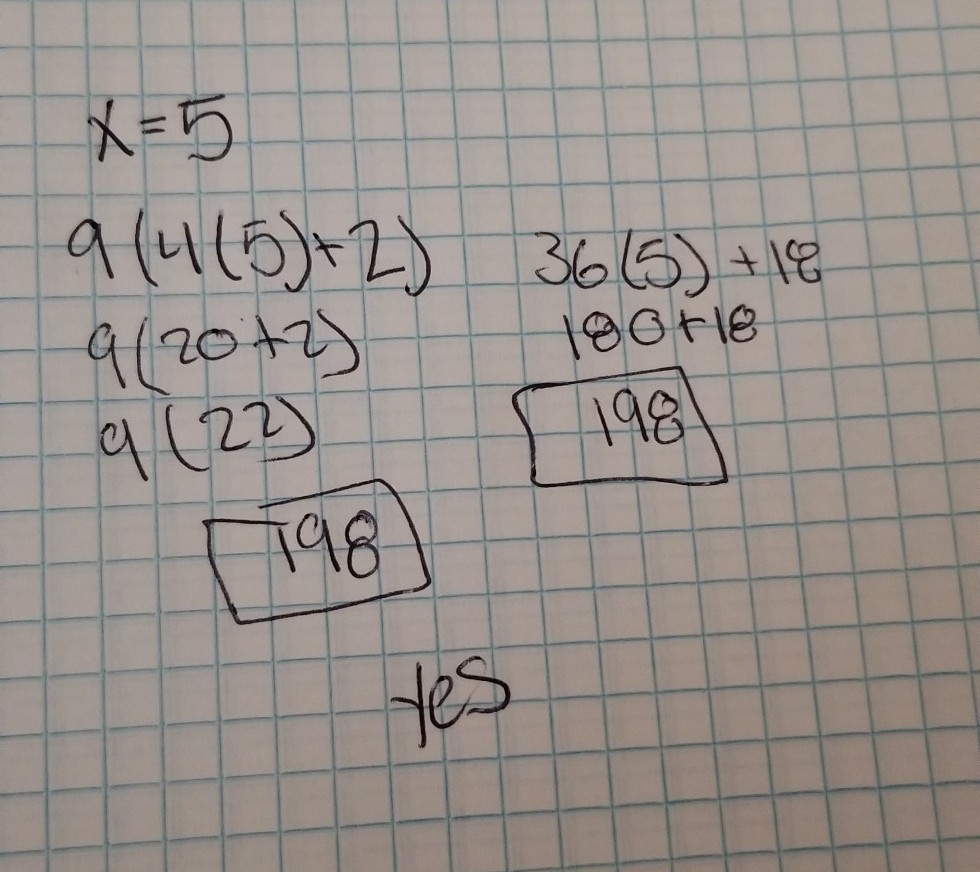 x=5
9(4(5)+2)
9(20+2)
9(22)
198
36(5)+18
180+18
198
yes